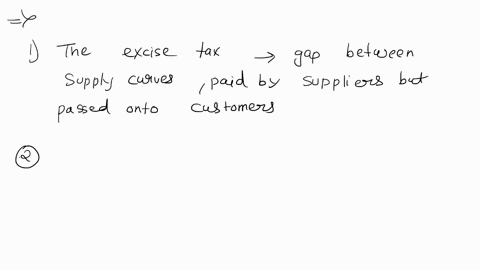 =>
1) The excise tax → gap between
Supply curves , paid by suppliers but
passed onto customers
②